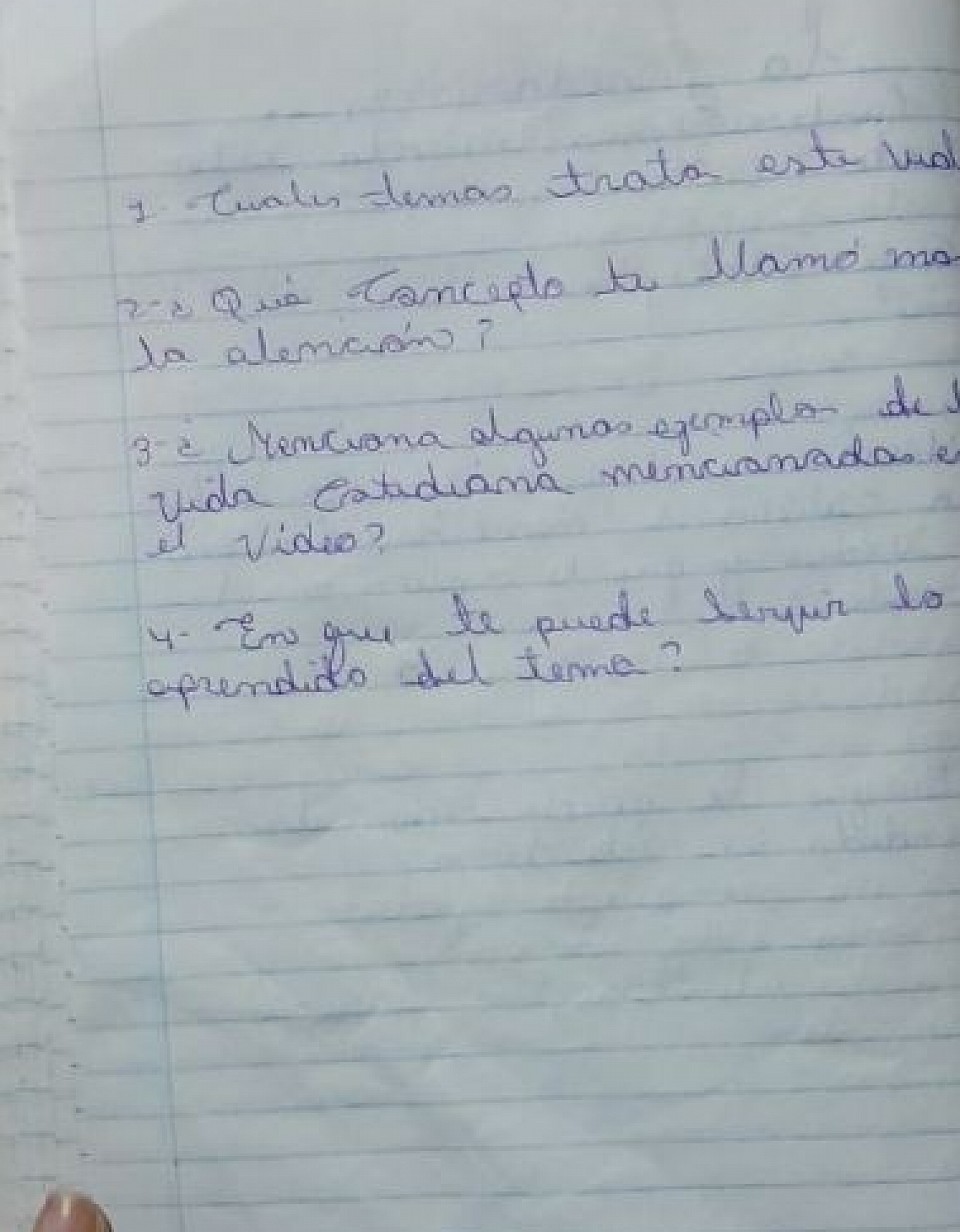 1- Cuales temas trata este vid
2-¿ Qué Concepto te llamó ma
la atención?
3-¿ Menciona algunos ejemplo de l
vida Cotidiana mencionadas e
el Video?
4- En que te puede servir lo
aprendido del tema?